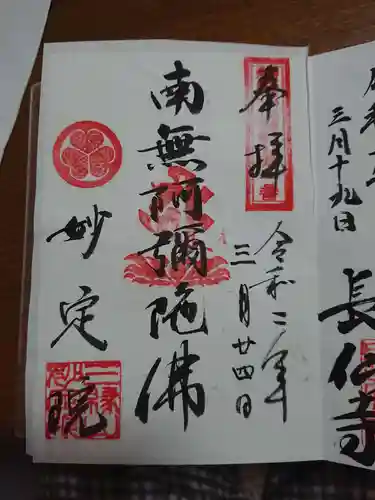 三月十九日
長仙寺
奉拝
令和二年
三月廿四日
南無阿彌陀佛
妙定院